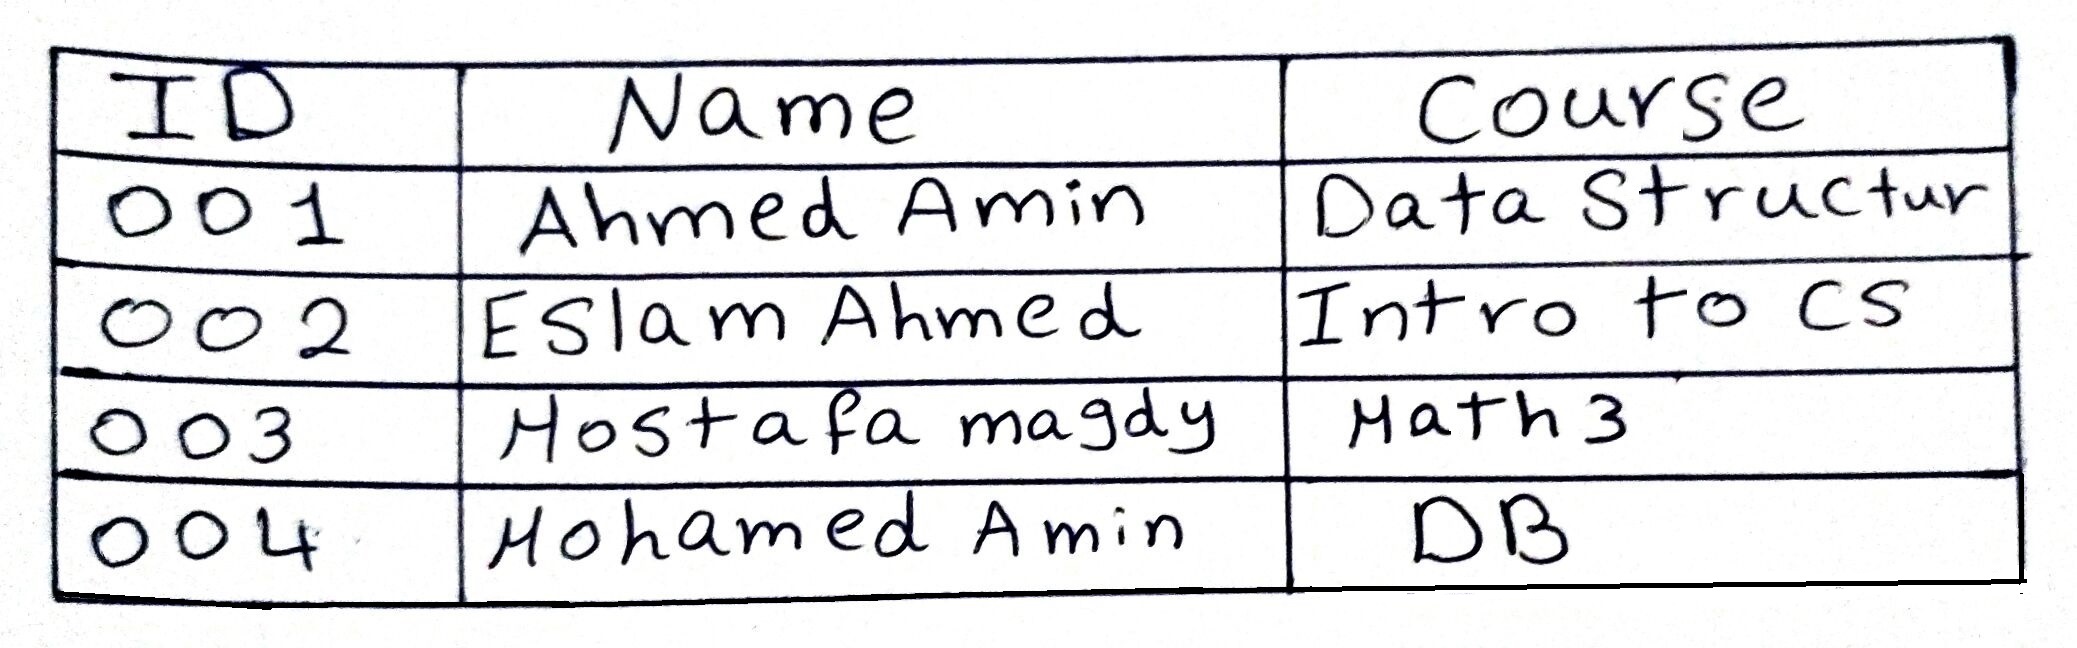 ID Name Course
001 Ahmed Amin Data Structur
002 ESlam Ahmed Intro to CS
003 Mostafa magdy Math 3
004 Mohamed Amin DB